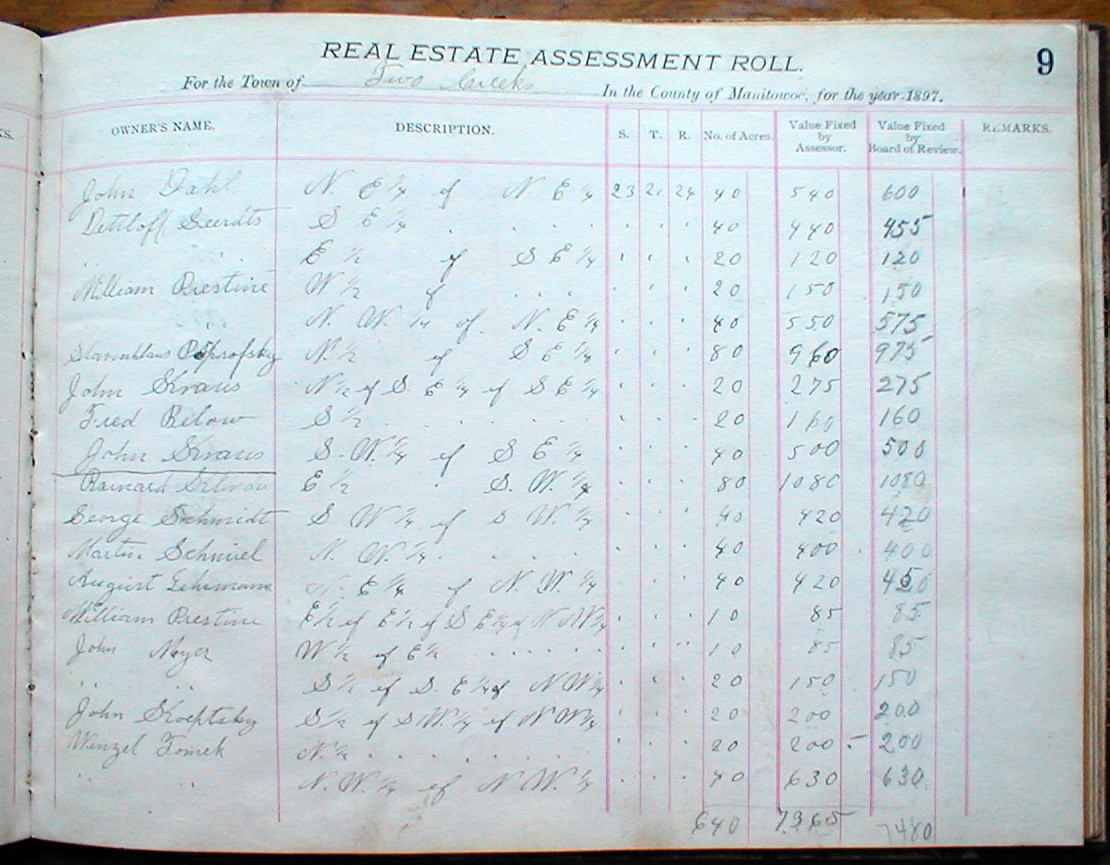 KS.
REAL ESTATE ASSESSMENT ROLL.
9
For the Town of Two Creeks In the County of Manitowoc, for the year 1897.
OWNER'S NAME. DESCRIPTION. S. T. R. No. of Acres. Value Fixed by Assessor. Value Fixed by Board of Review. REMARKS.
John Dahl N. E ¼ of N E ¼ 23 21 24 40 540 600
Dettloff Geerdts S E ¼ . . . . . . . . 40 440 455
" " E ½ of S E ¼ . . . 20 120 120
William Prestine W ½ of . . . . . . 20 150 150
" N. W. ¼ of N. E ¼ . . . 40 550 575
N. ½ of S E ¼ . . . 80 960 975
John Kraus N ½ of S E ¼ of S E ¼ . . . 20 275 275
Fred Below S ½ . . . . . . . . 20 160 160
John Kraus S. W. ¼ of S E ¼ . . . 40 500 500
E ½ . S. W. ¼ . . . 80 1080 1080
George Schmidt S W ¼ of S W. ¼ . . . 40 420 420
Martin N. W. ¼ . . . . . . . 40 400 400
August Lehmann N. E ¼ of N. W. ¼ . . . 40 420 450
William Prestine E ½ of E ½ of S E ¼ of N W ¼ . . . 10 85 85
John W ½ of E ½ . . . . . . . . 10 85 85
" " S ½ of S. E ¼ of N W ¼ . . . 20 150 150
John S ½ of S W. ¼ of N W ¼ . . . 20 200 200
Wenzel Tomek N. ½ . . . . . . . . 20 200 200
" " N. W. ¼ of N W. ¼ . . . 40 630 630
640 7365 7480